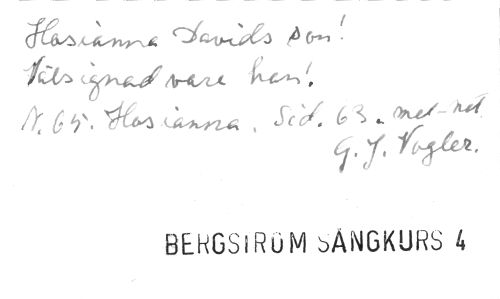 Hosianna Davids son!
Välsignad vare han!
N. 65. Hosianna. Sid. 63. met-not
G. J. Vogler.
BERGSTRÖM SÅNGKURS 4